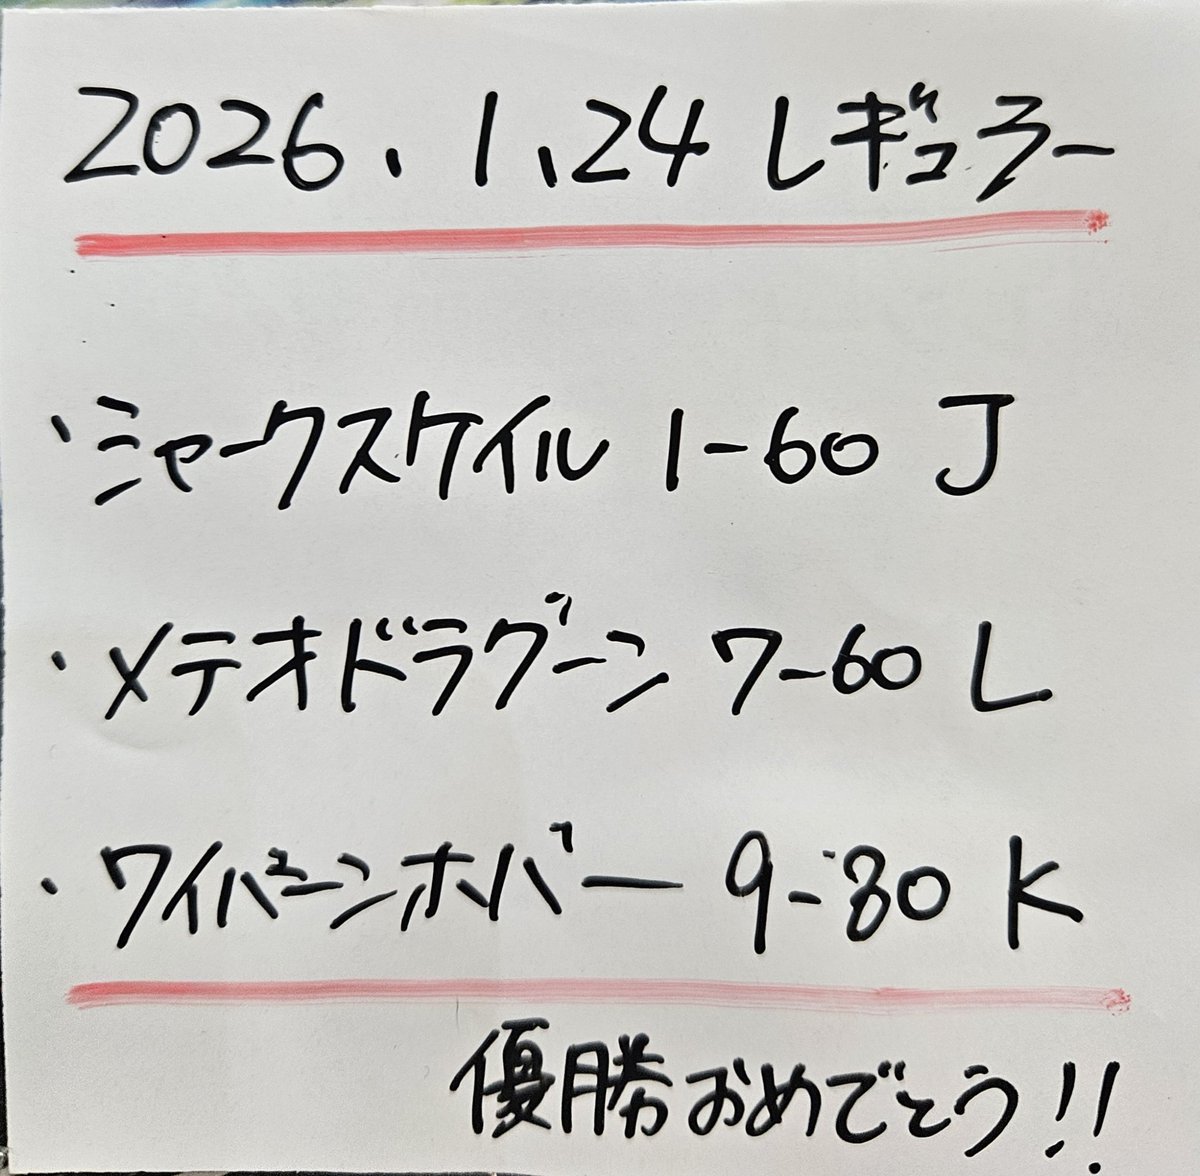 2026.1.24 レギュラー
・シャークスケイル 1-60 J
・メテオドラグーン 7-60 L
・ワイバーンホバー 9-80 K
優勝おめでとう!!